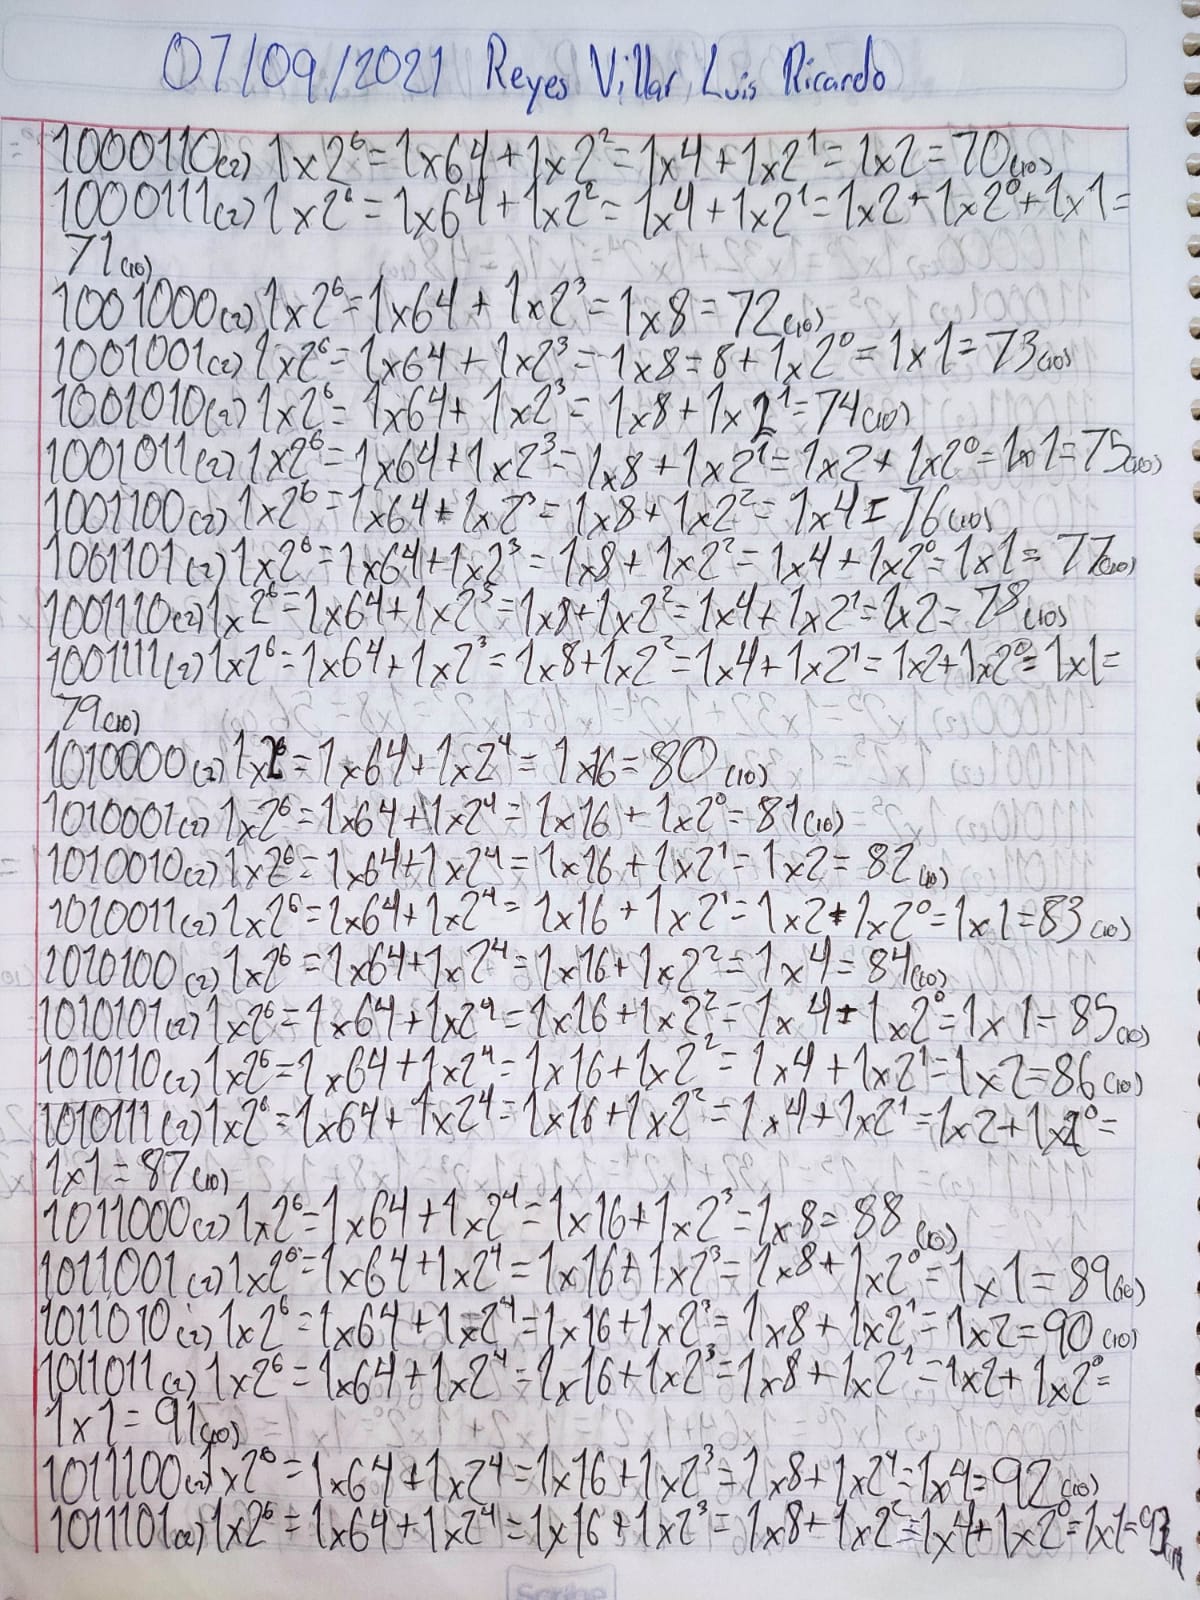 07/09/2021 Reyes Villar Luis Ricardo
1000110(2) 1x2⁶=1x64+1x2²=1x4+1x2¹=1x2=70(10)
1000111(2) 1x2⁶=1x64+1x2²=1x4+1x2¹=1x2+1x2⁰+1x1=
71(10)
1001000(2) 1x2⁶=1x64+1x2³=1x8=72(10)
1001001(2) 1x2⁶=1x64+1x2³=1x8=8+1x2⁰=1x1=73(10)
1001010(2) 1x2⁶=1x64+1x2³=1x8+1x2¹=74(10)
1001011(2) 1x2⁶=1x64+1x2³=1x8+1x2¹=1x2+1x2⁰=1x1=75(10)
1001100(2) 1x2⁶=1x64+1x2³=1x8+1x2²=1x4=76(10)
1001101(2) 1x2⁶=1x64+1x2³=1x8+1x2²=1x4+1x2⁰=1x1=77(10)
1001110(2) 1x2⁶=1x64+1x2³=1x8+1x2²=1x4+1x2¹=1x2=78(10)
1001111(2) 1x2⁶=1x64+1x2³=1x8+1x2²=1x4+1x2¹=1x2+1x2⁰=1x1=
79(10)
1010000(2) 1x2⁶=1x64+1x2⁴=1x16=80(10)
1010001(2) 1x2⁶=1x64+1x2⁴=1x16+1x2⁰=81(10)
1010010(2) 1x2⁶=1x64+1x2⁴=1x16+1x2¹=1x2=82(10)
1010011(2) 1x2⁶=1x64+1x2⁴=1x16+1x2¹=1x2+1x2⁰=1x1=83(10)
1010100(2) 1x2⁶=1x64+1x2⁴=1x16+1x2²=1x4=84(10)
1010101(2) 1x2⁶=1x64+1x2⁴=1x16+1x2²=1x4+1x2⁰=1x1=85(10)
1010110(2) 1x2⁶=1x64+1x2⁴=1x16+1x2²=1x4+1x2¹=1x2=86(10)
1010111(2) 1x2⁶=1x64+1x2⁴=1x16+1x2²=1x4+1x2¹=1x2+1x2⁰=
1x1=87(10)
1011000(2) 1x2⁶=1x64+1x2⁴=1x16+1x2³=1x8=88(10)
1011001(2) 1x2⁶=1x64+1x2⁴=1x16+1x2³=1x8+1x2⁰=1x1=89(10)
1011010(2) 1x2⁶=1x64+1x2⁴=1x16+1x2³=1x8+1x2¹=1x2=90(10)
1011011(2) 1x2⁶=1x64+1x2⁴=1x16+1x2³=1x8+1x2¹=1x2+1x2⁰=
1x1=91(10)
1011100(2) 1x2⁶=1x64+1x2⁴=1x16+1x2³=1x8+1x2⁴=1x4=92(10)
1011101(2) 1x2⁶=1x64+1x2⁴=1x16+1x2³=1x8+1x2²=1x4+1x2⁰=1x1=93(10)
Scribe